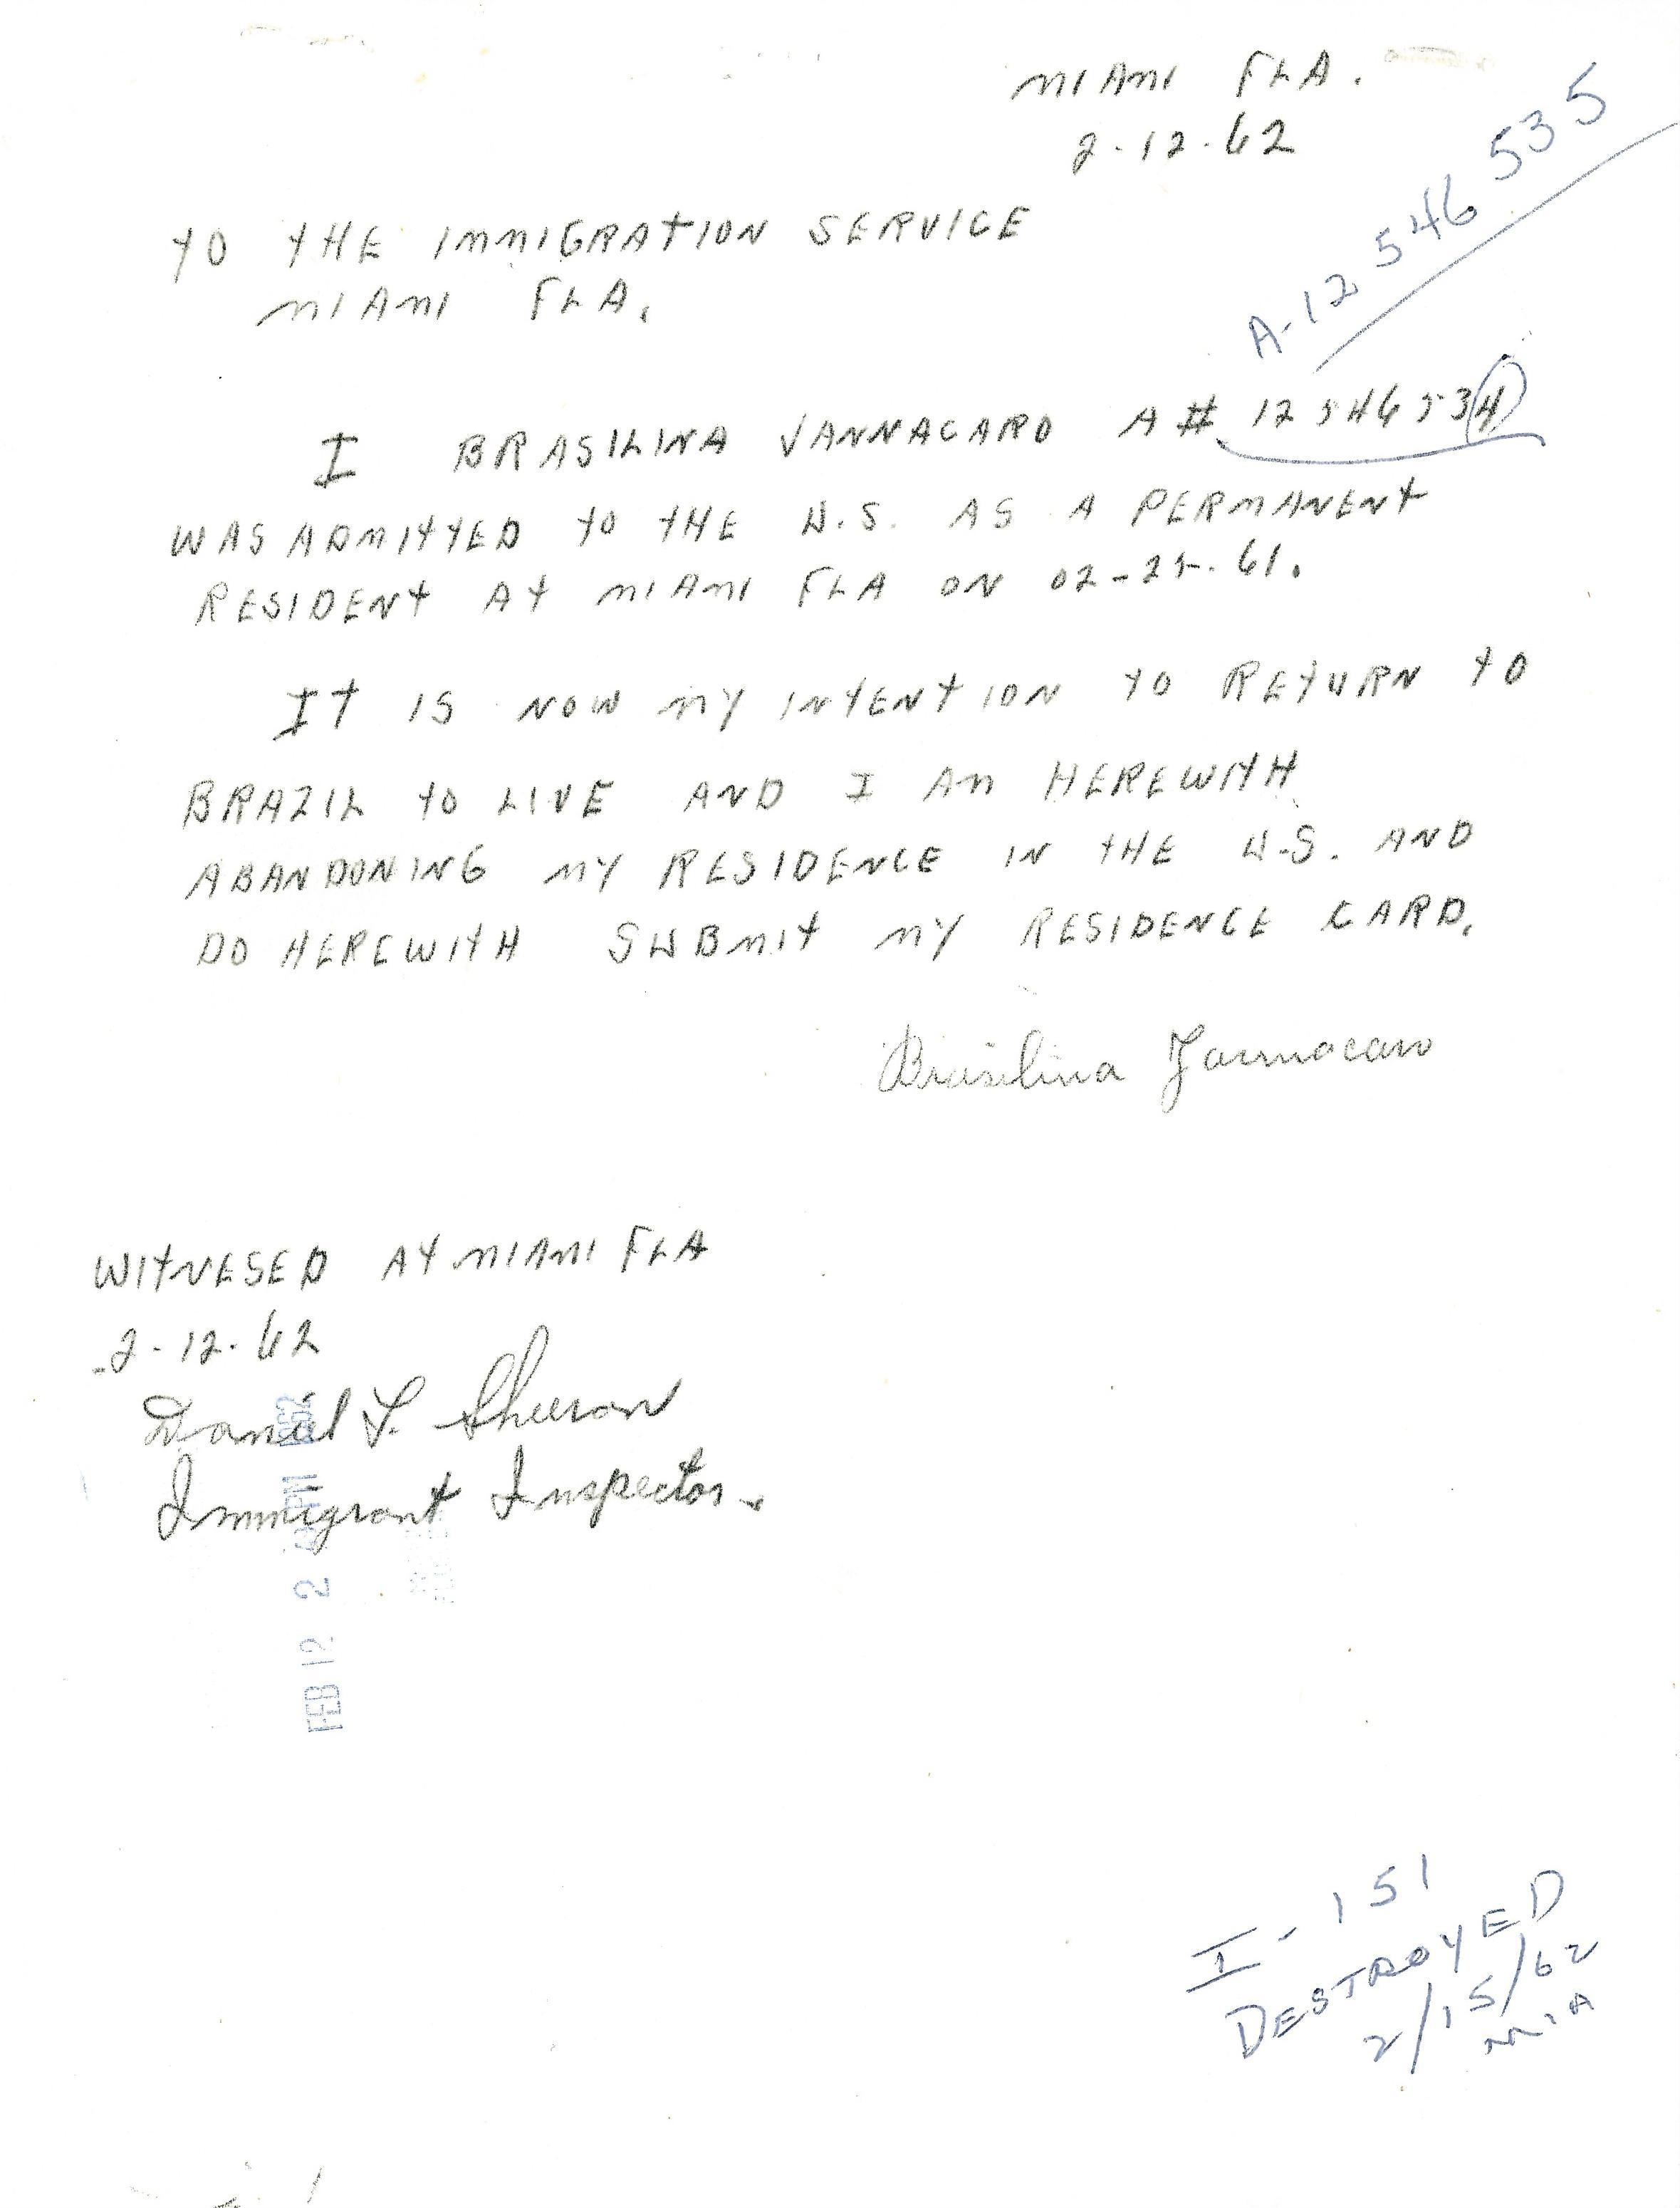 MIAMI FLA.
2-12-62
A-12 546 535
TO THE IMMIGRATION SERVICE
MIAMI FLA.
I BRASILINA JANNACARO A# 12 546 534
WAS ADMITTED TO THE U.S. AS A PERMANENT
RESIDENT AT MIAMI FLA ON 02-25-61.
IT IS NOW MY INTENTION TO RETURN TO
BRAZIL TO LIVE AND I AM HEREWITH
ABANDONING MY RESIDENCE IN THE U.S. AND
DO HEREWITH SUBMIT MY RESIDENCE CARD.
Brasilina
WITNESED AT MIAMI FLA
2-12-62
Daniel F. Sheeran
Immigrant Inspector
FEB 12 2 PM 1962
I-151
DESTROYED
2/15/62
MIA